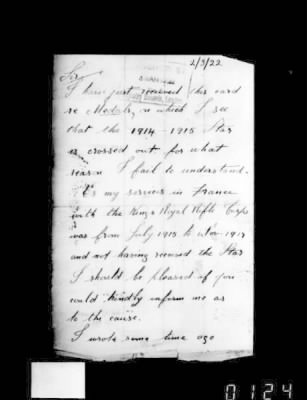 2/3/22
Sir,
I have just received this card
re Medals, in which I see
that the 1914-1915 Star
is crossed out for what
reason I fail to understand.
As my services in France
with the Kings Royal Rifle Corps
was from July 1915 to
and not having received the Star
I should be pleased if you
would kindly inform me as
to the cause.
I wrote some time ago
0124